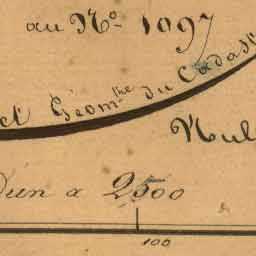 au N.º 1097
et Géom.tre du Cadast
Nul
D'un a 2500
100